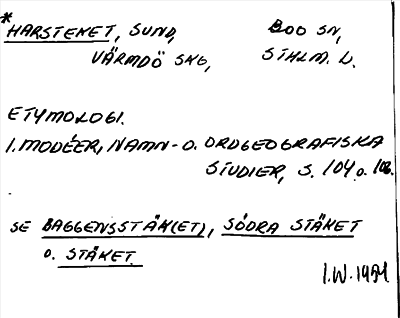 *HARSTEKET, SUND, BOO SN,
VÄRMDÖ SKG, STHLM. L.
ETYMOLOGI.
I. MODÉER, NAMN- O. ORDGEOGRAFISKA
STUDIER, S. 104 o. 108.
SE BAGGENSSTÄK(ET), SÖDRA STÄKET
O. STÄKET.